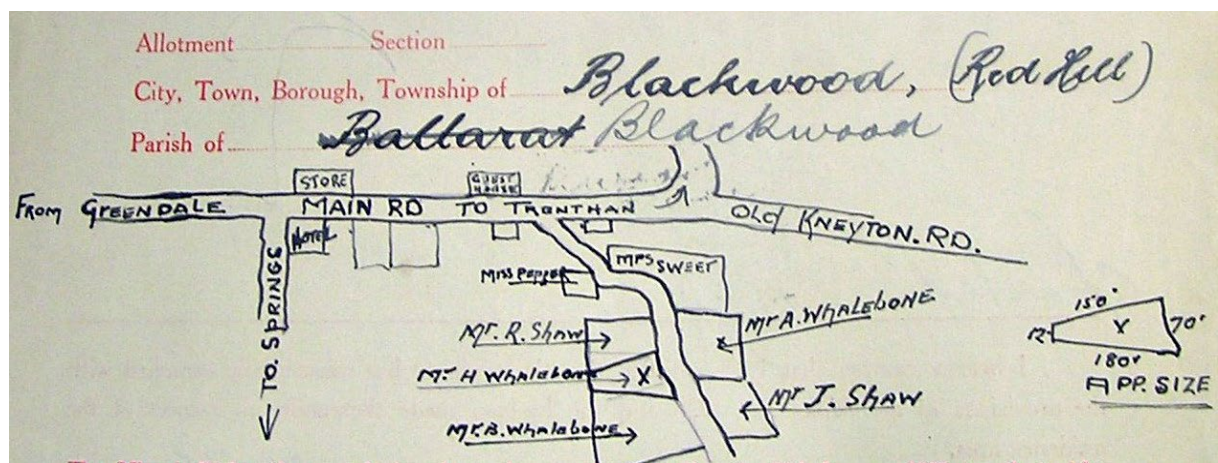 Allotment Section
City, Town, Borough, Township of Blackwood, (Red Hill)
Parish of Ballarat Blackwood
STORE
GUEST HOUSE
FROM GREENDALE MAIN RD TO TRONTHAN OLD KNEYTON. RD.
HOTEL
TO. SPRINGS
MISS PEPPER
MRS SWEET
Mr. R. Shaw
Mr A. WHALEBONE
Mr H WHALEBONE X
Mr J. SHAW
Mr. B. WHALEBONE
150'
12'
X
70'
180'
APP. SIZE